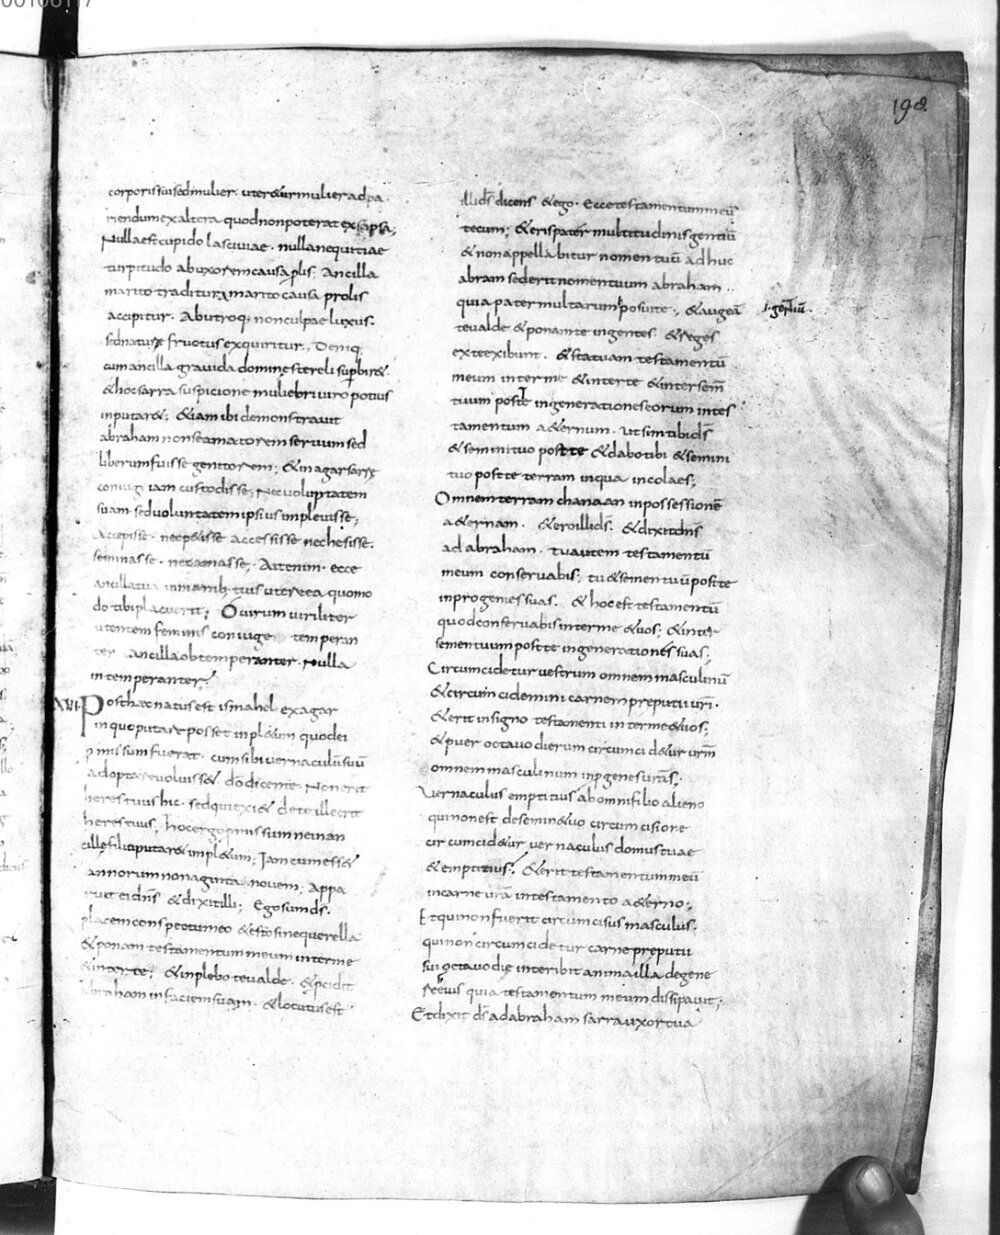 00106117
198
corporis sui sed mulier. utetur mulier ad pa
riendum ex altera quod non poterat ex se ipsa;
Nulla est cupido lasciviae. nulla nequitiae
turpitudo ab uxorem causa plis; Ancilla
marito traditur, a marito causa prolis
accipitur. Ab utroq; non culpae luxus.
sed naturȩ fructus exquiritur; Deniq
cum ancilla gravida dominȩ sterili supbir&
& hoc sarra suspicione muliebri viro potius
inputar&; &iam ibi demonstravit
abraham non se amatorem servum sed
liberum fuisse genitorem; &in agar sarrȩ
coniugi iam custodisse; Nec voluptatem
suam sed voluntatem ipsius implevisse;
Accepisse. nec p&isse accessisse nec hesisse.
seminasse. nec amasse; Ait enim. ecce
ancilla tua in manib; tuis utere ea quomo
do tibi placuerit; O virum viriliter
utentem feminis coniuge temperan
ter ancilla obtemperanter. nulla
intemperanter;
XVI. Post haec natus est ismahel ex agar
in quo putare posset inpl&um quod ei
pmissum fuerat. cum sibi vernaculum suū
adoptare voluiss& dō dicente. Non erit
heres tuus hic. sed qui exi& de te ille erit
heres tuus; hoc ergo pmissum ne in an
cillȩ filio putar& impl&um; Iam cum ess&
annorum nonaginta novem; Appa
ruit ei dns̄ &dixit illi; Ego sum ds̄.
place in conspectu meo &esto sine querella
&ponam testamentum meum inter me
&inter te; &inplebo te valde. &pcidit
abraham in faciem suam. &locutus est
illi ds̄ dicens &ego. Ecce testamentum meū
tecum; &eris pater multitudinis gentiū
&non appellabitur nomen tuū adhuc
abram sed erit nomen tuum abraham..
quia pater multarum posui te; &augeā .i. gentiū.
te valde &ponam te in gentes. &reges
ex te exibunt. &statuam testamentū
meum inter me &inter te &inter sem̄
tuum post te in generationes eorum in tes
tamentum a&ernum. ut sim tibi ds̄
&semini tuo post te &dabo tibi &semini
tuo post te terram in qua incolaes;
Omnem terram chanaan in possessionē
a&ernam. &ero illi ds̄. &dixit dns̄
ad abraham. tu autem testamentū
meum conservabis; tu &semen tuū post te
in progenies suas. &hoc est testamentū
quod conservabis inter me &vos; &inter
semen tuum post te in generationes suas;
Circumcidetur vestrum omnem masculinū
&circumcidemini carnem preputii vr̄i.
&erit in signo testamenti inter me &vos;
&puer octavo dierum circumcid&ur vrm̄
omnem masculinum in pgenes vrās;
Vernaculus emptitius ab omni filio alieno
qui non est de semine tuo circumcisione
circumcid&ur vernaculus domus tuae
&emptitius; &erit testamentum meū
in carne vrā in testamento a&erno;
Et qui non fuerit circumcisus masculus.
qui non circumcidetur carne preputii
sui octavo die interibit anima illa de gene
re eius quia testamentum meum dissipavit;
Et dixit ds̄ ad abraham sarra uxor tua